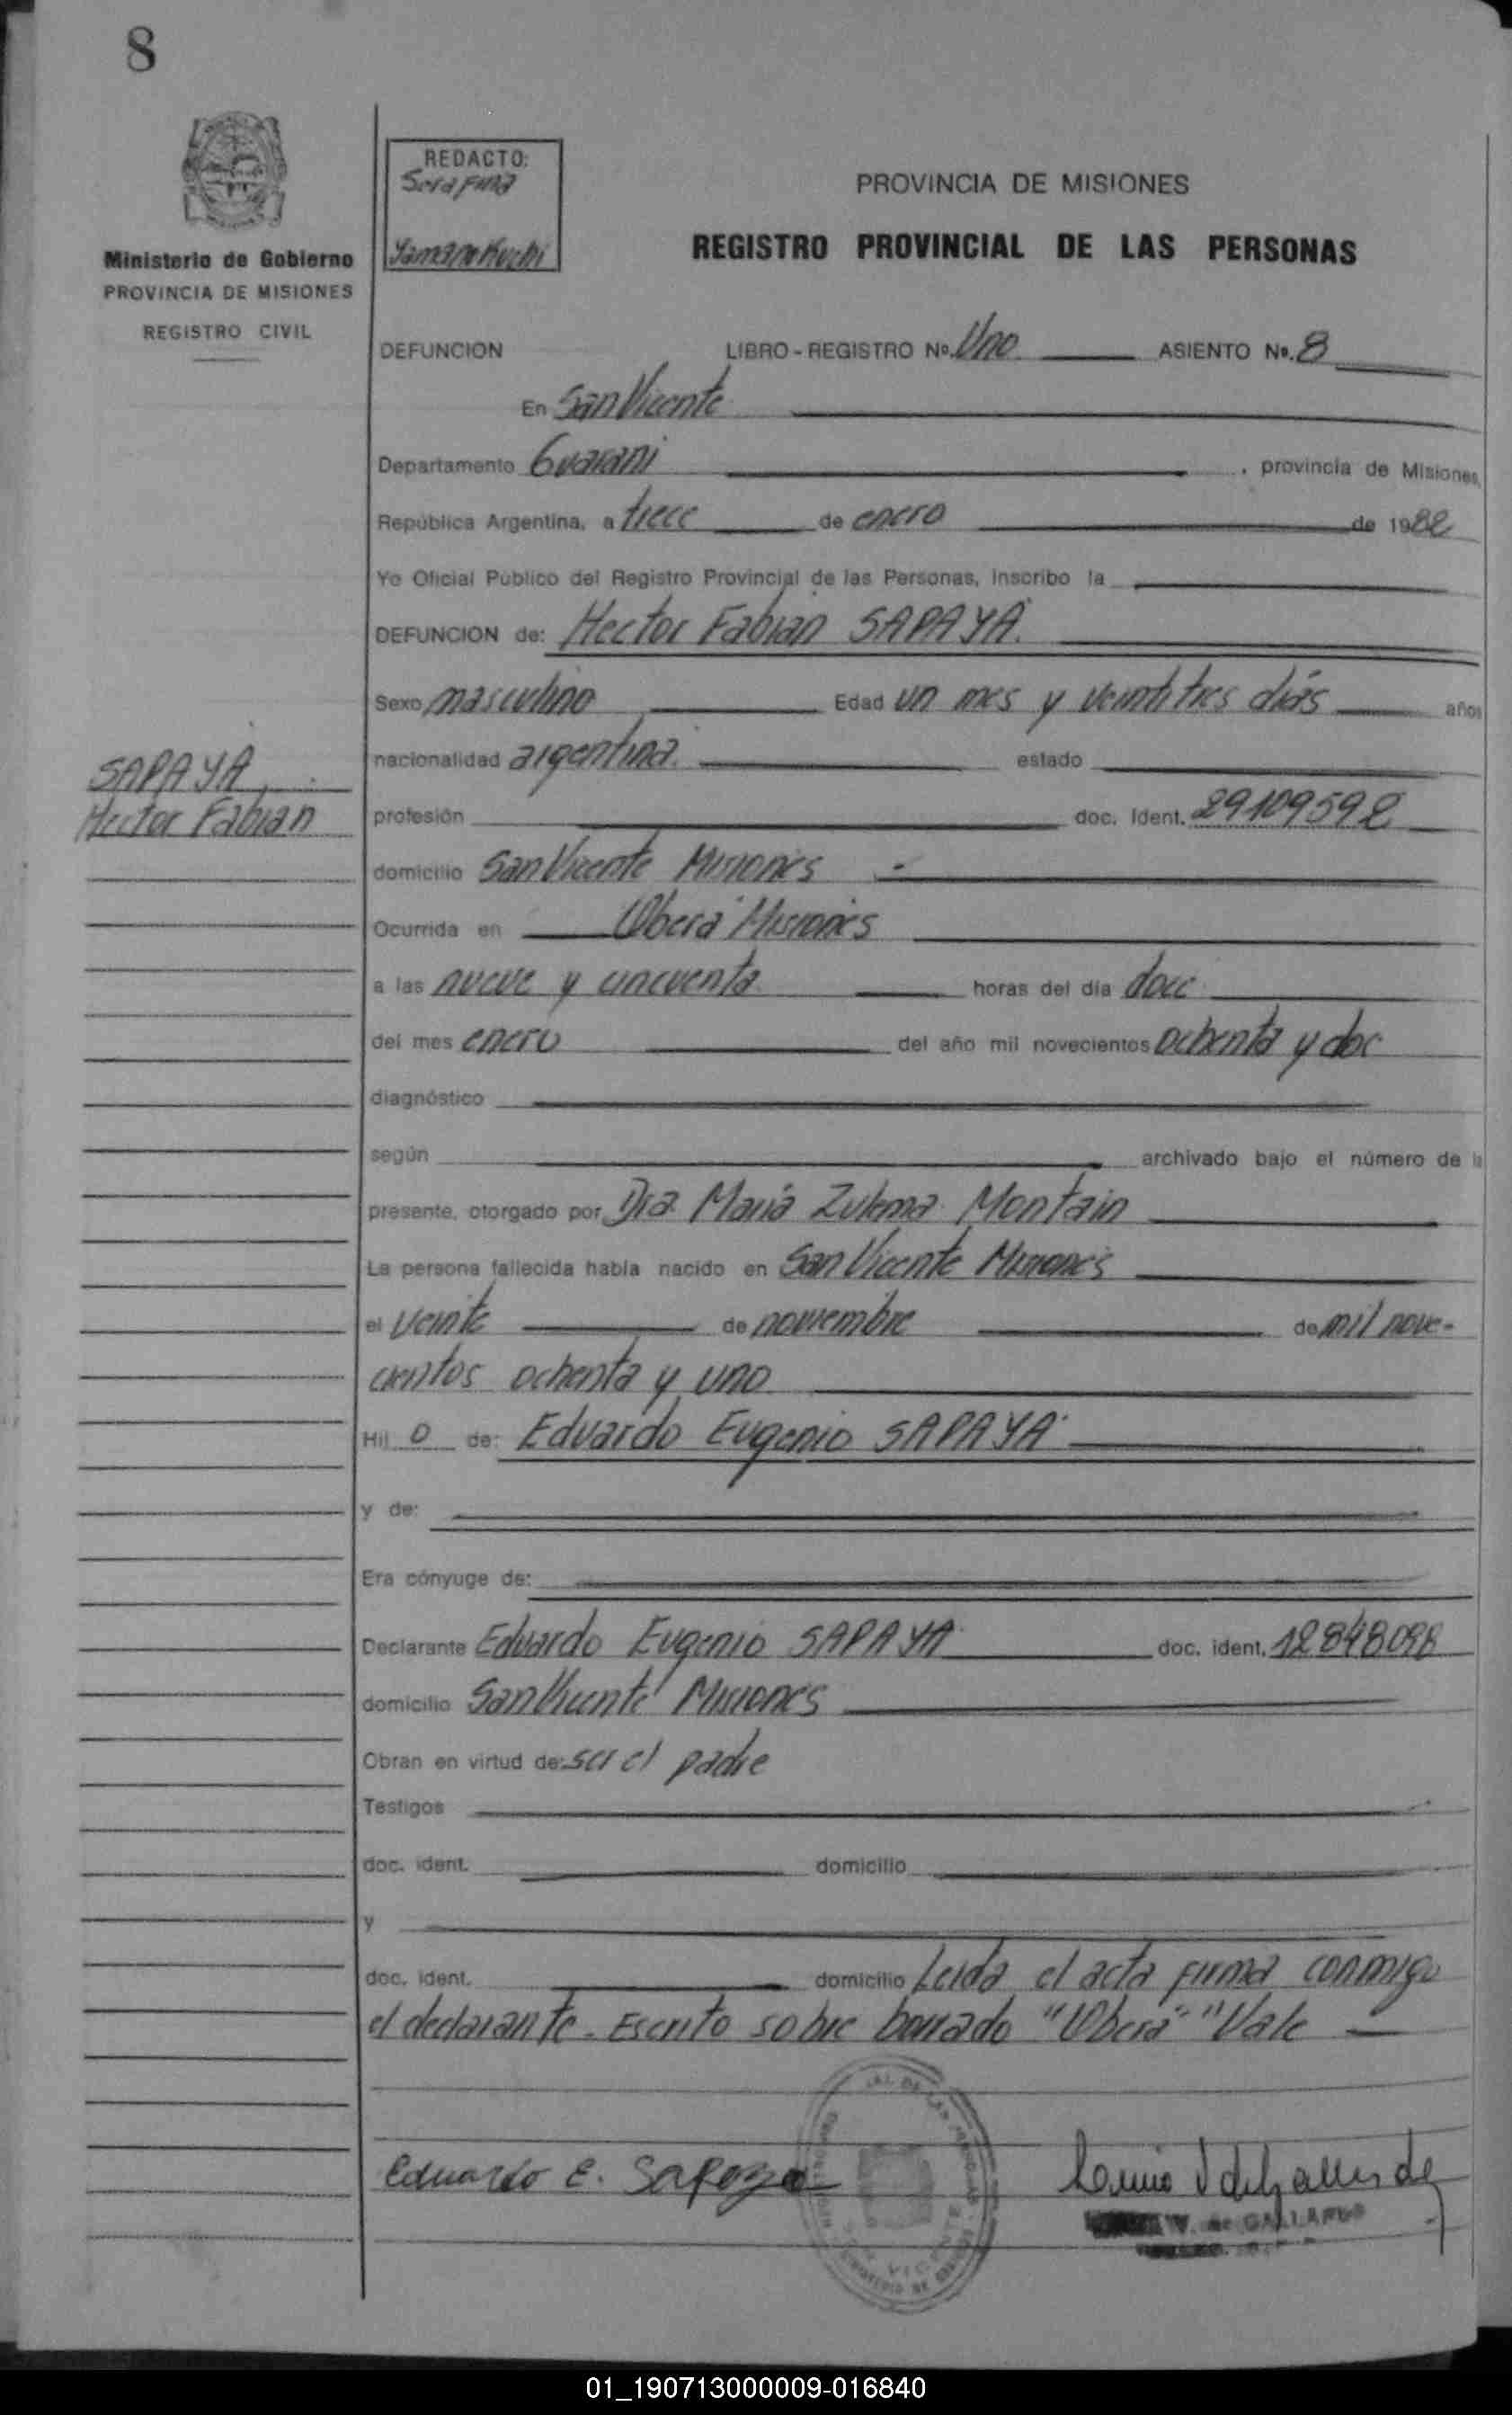 8
REDACTO:
Serafina
Yamaguchi
Ministerio de Gobierno
PROVINCIA DE MISIONES
REGISTRO CIVIL
PROVINCIA DE MISIONES
REGISTRO PROVINCIAL DE LAS PERSONAS
DEFUNCION LIBRO - REGISTRO Nº. Uno ASIENTO Nº. 8
En San Vicente
Departamento Guarani , provincia de Misiones,
República Argentina, a trece de enero de 1982
Yo Oficial Público del Registro Provincial de las Personas, inscribo la
DEFUNCION de: Hector Fabian SAPAYA
Sexo masculino Edad un mes y veintitres días años
nacionalidad argentina. estado
SAPAYA
Hector Fabian
profesión doc. Ident. 29109592
domicilio San Vicente Misiones
Ocurrida en Oberá Misiones
a las nueve y cincuenta horas del día doce
del mes enero del año mil novecientos ochenta y dos
diagnóstico
según archivado bajo el número de la
presente, otorgado por Dra María Zulema Montain
La persona fallecida había nacido en San Vicente Misiones
el veinte de noviembre de mil nove-
cientos ochenta y uno
Hij o de: Eduardo Eugenio SAPAYA
y de:
Era cónyuge de:
Declarante Eduardo Eugenio SAPAYA doc. ident. 12848098
domicilio San Vicente Misiones
Obran en virtud de: ser el padre
Testigos
doc. ident. domicilio
y
doc. ident. domicilio Leida el acta firma conmigo
el declarante. Escrito sobre borrado "Oberá" Vale
Eduardo E. Sapaya
V. de GALLARDO
01_190713000009-016840